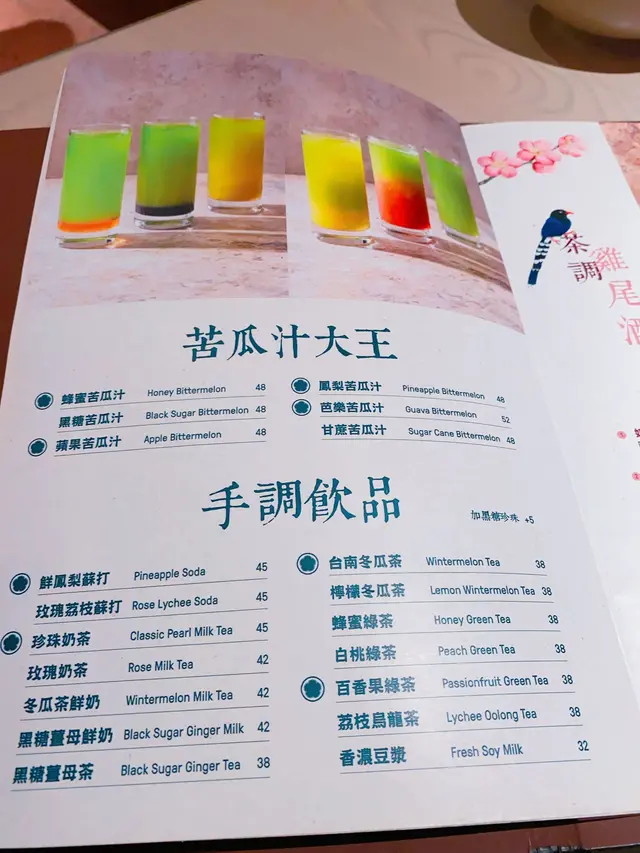 苦瓜汁大王
蜂蜜苦瓜汁 Honey Bittermelon 48
黑糖苦瓜汁 Black Sugar Bittermelon 48
蘋果苦瓜汁 Apple Bittermelon 48
鳳梨苦瓜汁 Pineapple Bittermelon 48
芭樂苦瓜汁 Guava Bittermelon 52
甘蔗苦瓜汁 Sugar Cane Bittermelon 48
手調飲品
加黑糖珍珠 +5
鮮鳳梨蘇打 Pineapple Soda 45
玫瑰荔枝蘇打 Rose Lychee Soda 45
珍珠奶茶 Classic Pearl Milk Tea 45
玫瑰奶茶 Rose Milk Tea 42
冬瓜茶鮮奶 Wintermelon Milk Tea 42
黑糖薑母鮮奶 Black Sugar Ginger Milk 42
黑糖薑母茶 Black Sugar Ginger Tea 38
台南冬瓜茶 Wintermelon Tea 38
檸檬冬瓜茶 Lemon Wintermelon Tea 38
蜂蜜綠茶 Honey Green Tea 38
白桃綠茶 Peach Green Tea 38
百香果綠茶 Passionfruit Green Tea 38
荔枝烏龍茶 Lychee Oolong Tea 38
香濃豆漿 Fresh Soy Milk 32
茶調
雞尾酒